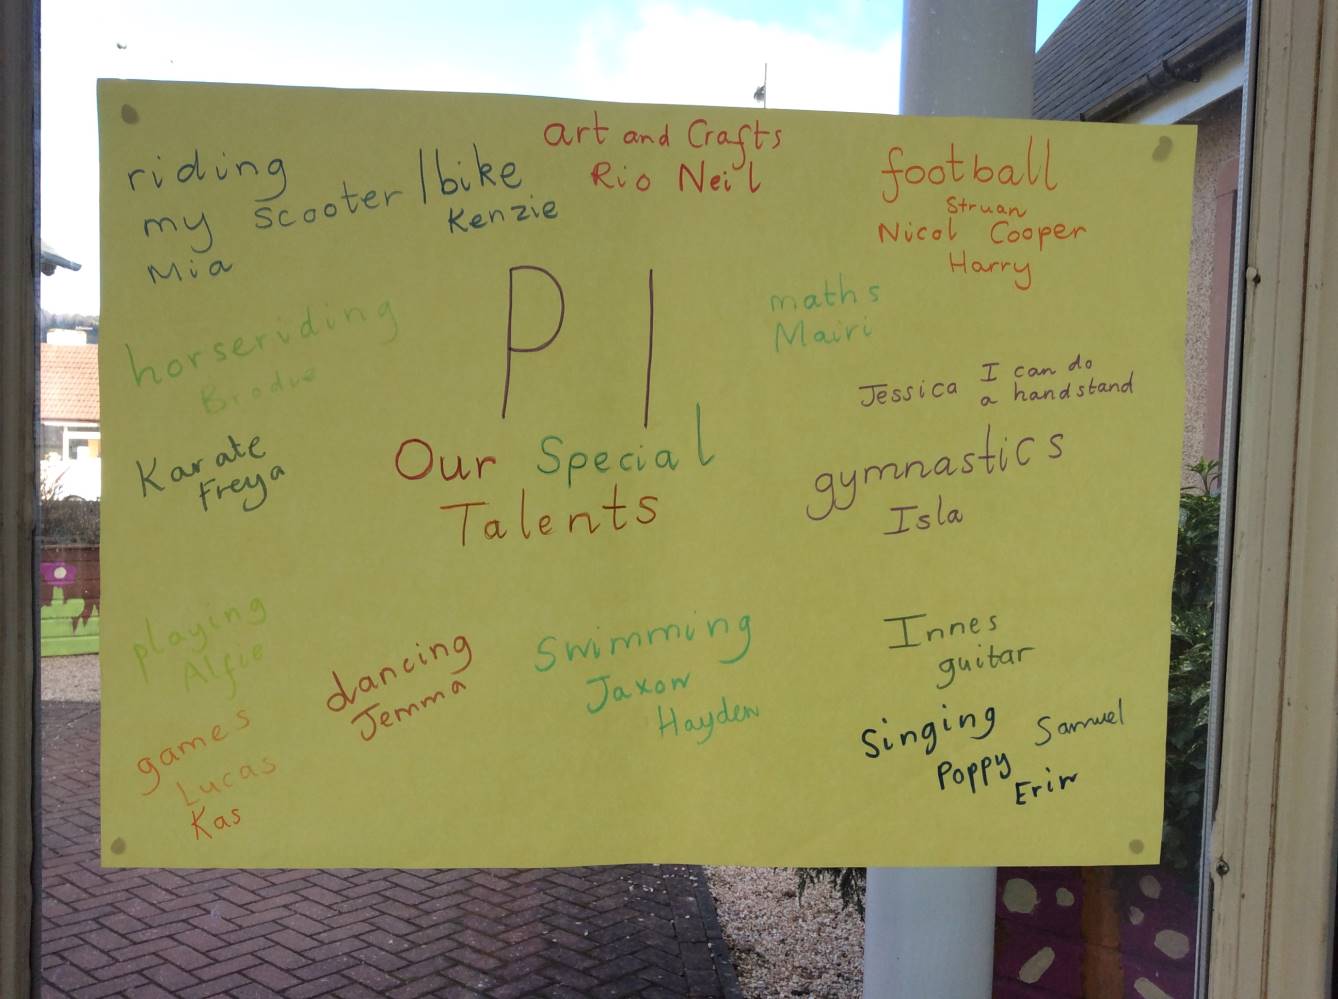 riding
my scooter / bike
Mia
Kenzie
art and Crafts
Rio Neil
football
Struan
Nicol Cooper
Harry
horseriding
Brodie
P1
maths
Mairi
Jessica I can do
a handstand
Karate
Freya
Our Special
Talents
gymnastics
Isla
playing
Alfie
games
Lucas
Kas
dancing
Jemma
Swimming
Jaxon
Hayden
Innes
guitar
Singing Samuel
Poppy
Erin